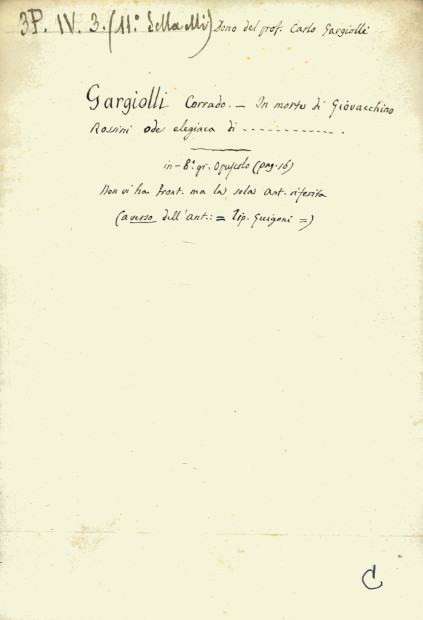 3P. IV. 3. (11° della Mi) Dono del prof. Carlo Gargiolli
Gargiolli Corrado. — In morte di Giovacchino
Rossini ode elegiaca di - - - - - - - - - - - -.
in-8° gr. Opuscolo (pag. 16)
Non vi ha front. ma la sola ant. riferita
(averso dell'ant.: = Tip. Guigoni =)
C